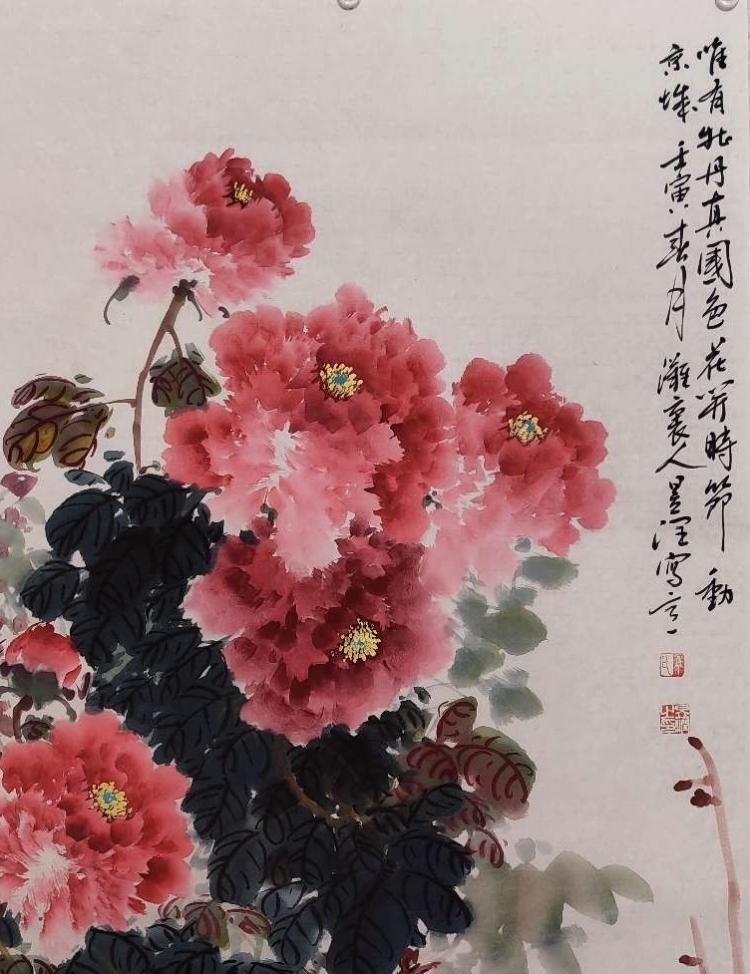 唯有牡丹真國色花開時節動
京城 壬寅春月 濰襄人昱江寫意